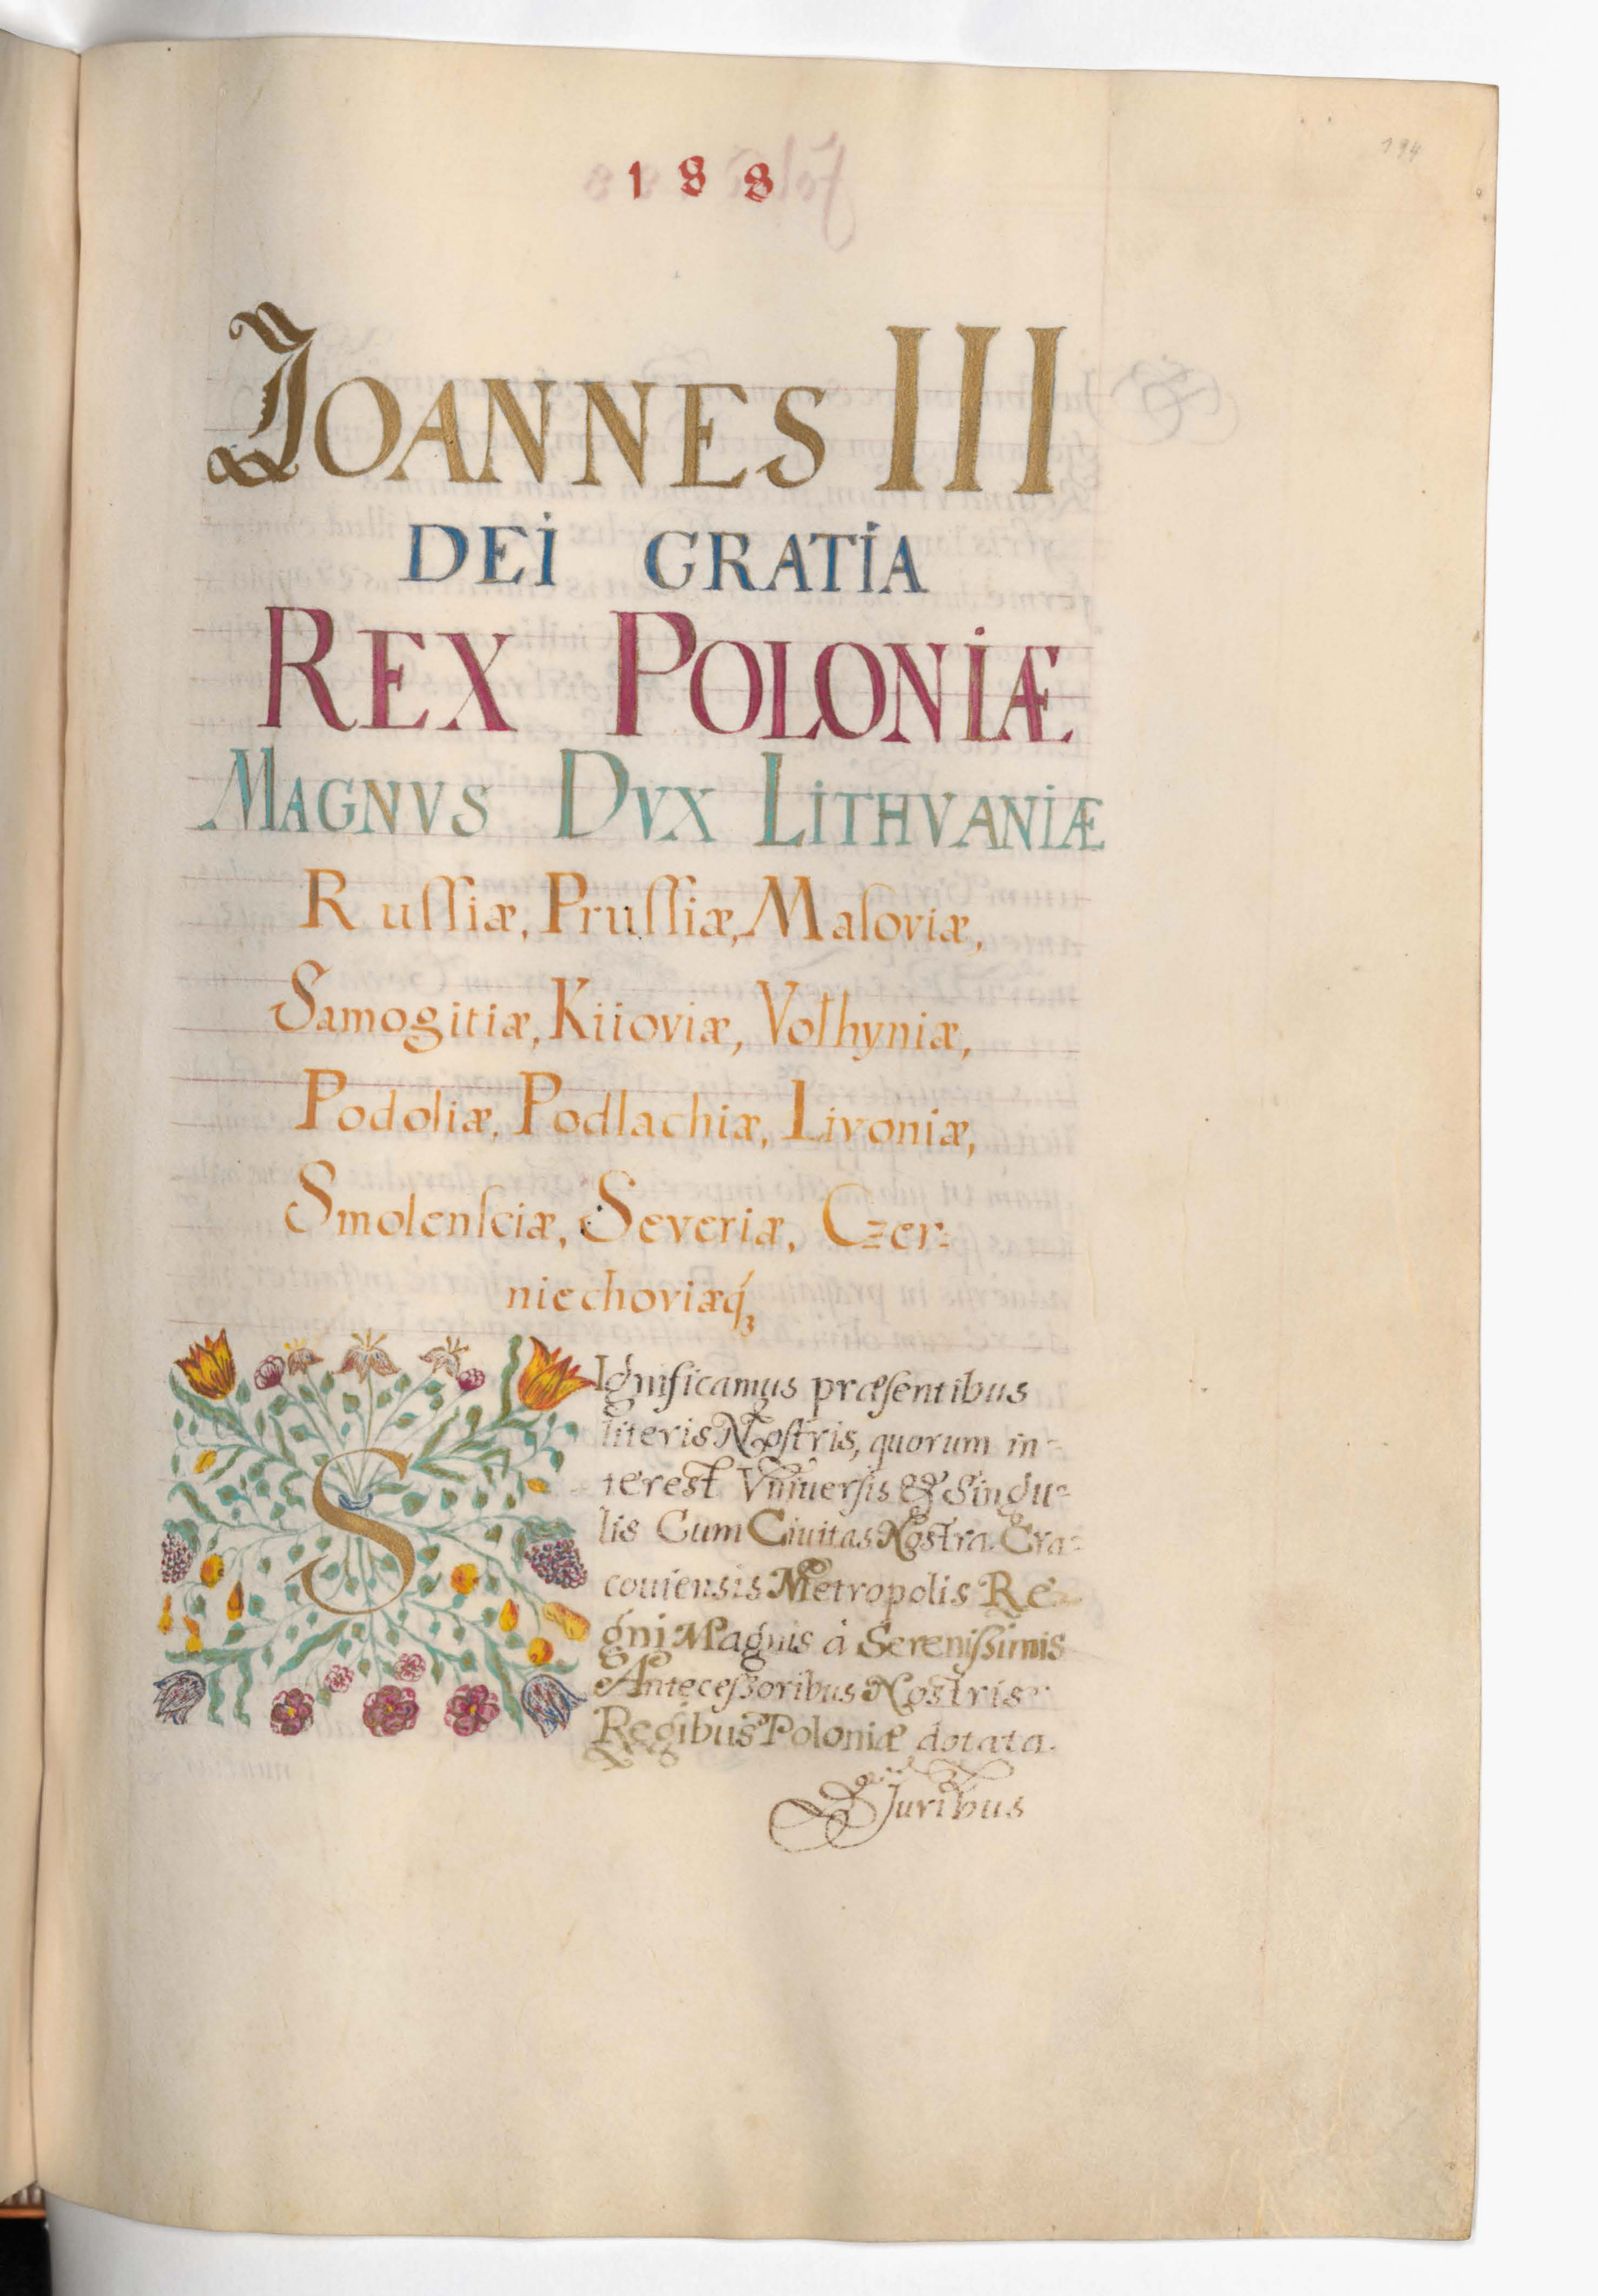 188
194
JOANNES III
DEI GRATIA
REX POLONIÆ
MAGNVS DVX LITHVANIÆ
Ruſſiæ, Pruſſiæ, Maſoviæ,
Samogitiæ, Kiioviæ, Volhyniæ,
Podoliæ, Podlachiæ, Livoniæ,
Smolenſciæ, Severiæ, Czer=
niechoviæq́₃
SIgnificamus præſentibus
literis Noſtris, quorum in=
terest Vniuerſis & Singu=
lis Cum Ciuitas Nostra Cra=
couiensis Metropolis Re=
gni Magnis à Sereniſsimis
Anteceſsoribus Nostris
Regibus Poloniæ dotata
Juribus